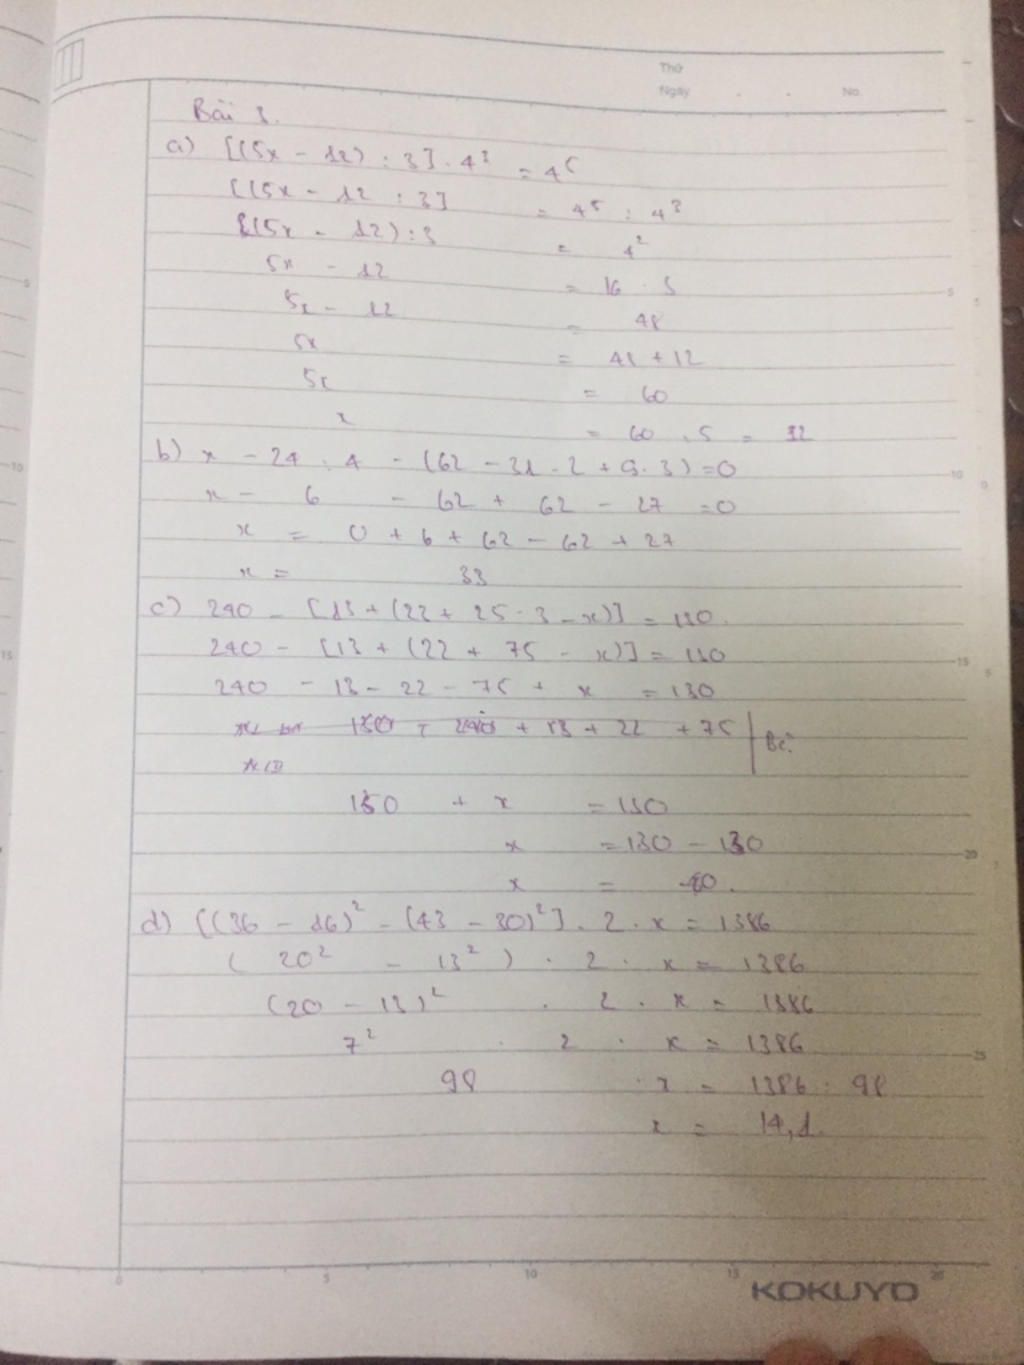 Thứ
Ngày . . No.
Bài 3.
a) [(5x - 12) : 3] . 4³ = 4⁵
[(5x - 12 : 3] = 4⁵ : 4³
[(5x - 12) : 3 = 4²
5x - 12 = 16 . 3
5x - 12 = 48
5x = 48 + 12
5x = 60
x = 60 : 5 = 12
b) x - 24 : 4 - (62 - 31 . 2 + 9 . 3) = 0
x - 6 - 62 + 62 - 27 = 0
x = 0 + 6 + 62 - 62 + 27
x = 33
c) 240 - [13 + (22 + 25 . 3 - x)] = 130.
240 - [13 + (22 + 75 - x)] = 130
240 - 13 - 22 - 75 + x = 130
130 - 240 + 13 + 22 + 75
130 + x = 130
x = 130 - 130
x = 0.
d) [(36 - 16)² - (43 - 30)²] . 2 . x = 1386
( 20² - 13² ) . 2 . x = 1386
(20 - 13)² . 2 . x = 1386
7² . 2 . x = 1386
98 . x = 1386 : 98
x = 14,1.
0 5 10 15 20
KOKUYO